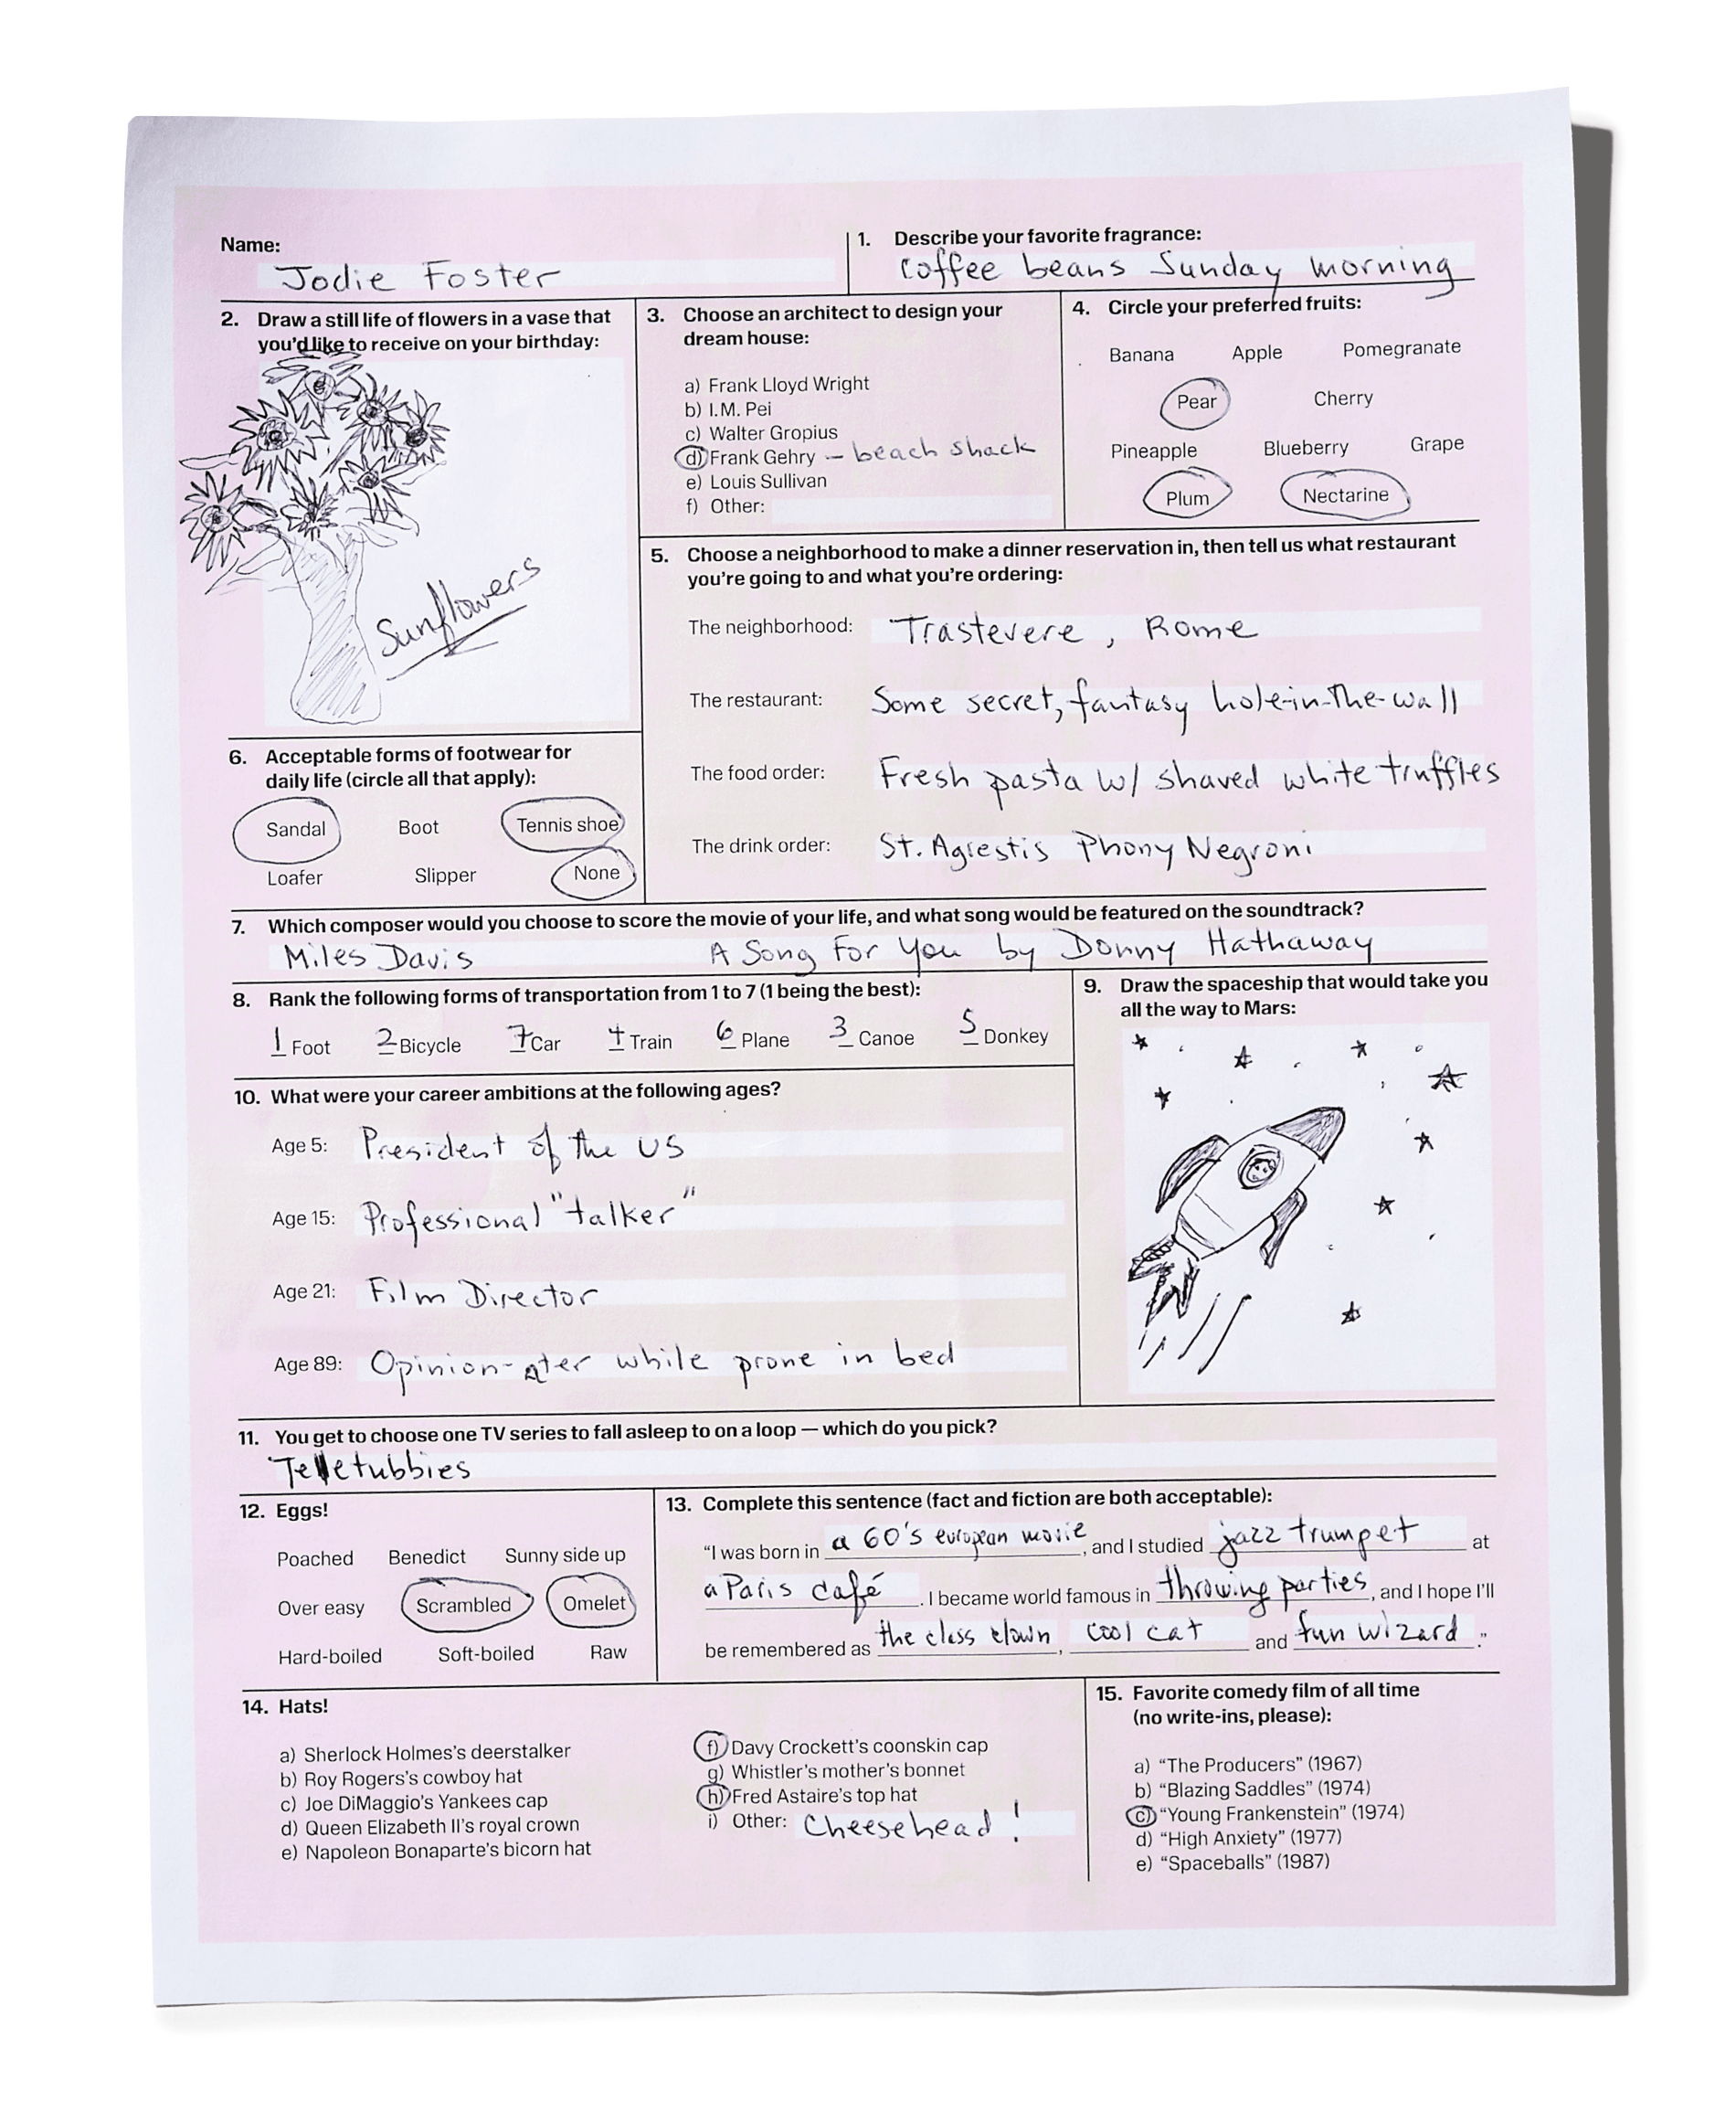 Name:
Jodie Foster
1. Describe your favorite fragrance:
coffee beans Sunday morning
2. Draw a still life of flowers in a vase that
you'd like to receive on your birthday:
Sunflowers
3. Choose an architect to design your
dream house:
a) Frank Lloyd Wright
b) I.M. Pei
c) Walter Gropius
d) Frank Gehry – beach shack
e) Louis Sullivan
f) Other:
4. Circle your preferred fruits:
Banana Apple Pomegranate
Pear Cherry
Pineapple Blueberry Grape
Plum Nectarine
5. Choose a neighborhood to make a dinner reservation in, then tell us what restaurant
you're going to and what you're ordering:
The neighborhood: Trastevere, Rome
The restaurant: Some secret, fantasy hole-in-the-wall
The food order: Fresh pasta w/ shaved white truffles
The drink order: St. Agrestis Phony Negroni
6. Acceptable forms of footwear for
daily life (circle all that apply):
Sandal Boot Tennis shoe
Loafer Slipper None
7. Which composer would you choose to score the movie of your life, and what song would be featured on the soundtrack?
Miles Davis A Song For You by Donny Hathaway
8. Rank the following forms of transportation from 1 to 7 (1 being the best):
1 Foot 2 Bicycle 7 Car 4 Train 6 Plane 3 Canoe 5 Donkey
9. Draw the spaceship that would take you
all the way to Mars:
10. What were your career ambitions at the following ages?
Age 5: President of the US
Age 15: Professional "talker"
Age 21: Film Director
Age 89: Opinion-ater while prone in bed
11. You get to choose one TV series to fall asleep to on a loop — which do you pick?
Teletubbies
12. Eggs!
Poached Benedict Sunny side up
Over easy Scrambled Omelet
Hard-boiled Soft-boiled Raw
13. Complete this sentence (fact and fiction are both acceptable):
"I was born in a 60's european movie, and I studied jazz trumpet at
a Paris café. I became world famous in throwing parties, and I hope I'll
be remembered as the class clown, cool cat and fun wizard."
14. Hats!
a) Sherlock Holmes's deerstalker
b) Roy Rogers's cowboy hat
c) Joe DiMaggio's Yankees cap
d) Queen Elizabeth II's royal crown
e) Napoleon Bonaparte's bicorn hat
f) Davy Crockett's coonskin cap
g) Whistler's mother's bonnet
h) Fred Astaire's top hat
i) Other: Cheesehead!
15. Favorite comedy film of all time
(no write-ins, please):
a) "The Producers" (1967)
b) "Blazing Saddles" (1974)
c) "Young Frankenstein" (1974)
d) "High Anxiety" (1977)
e) "Spaceballs" (1987)